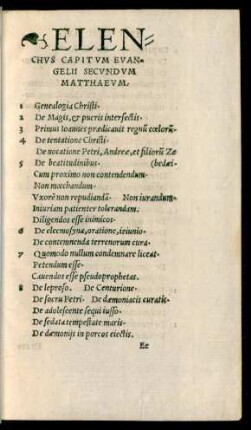 ELEN=
CHVS CAPITVM EVAN-
GELII SECVNDVM
MATTHAEVM.
1 Genealogia Christi.
2 De Magis, et pueris interfectis.
3 Primus Ioannes prædicauit regnũ cœlorũ.
4 De tentatione Christi.
De uocatione Petri, Andreæ, et filiorũ Ze
5 De beatitudinibus. (bedæi.
Cum proximo non contendendum.
Non mœchandum.
Vxorẽ non repudiandã. Non iurandum.
Iniuriam patienter tolerandam.
Diligendos esse inimicos.
6 De eleemosyna, oratione, ieiunio.
De contemnenda terrenorum cura.
7 Quomodo nullum condemnare liceat.
Petendum esse.
Cauendos esse pseudoprophetas.
8 De leproso. De Centurione.
De socru Petri. De dæmoniacis curatis.
De adolescente sequi iusso.
De sedata tempestate maris.
De dæmonijs in porcos eiectis.
Ee